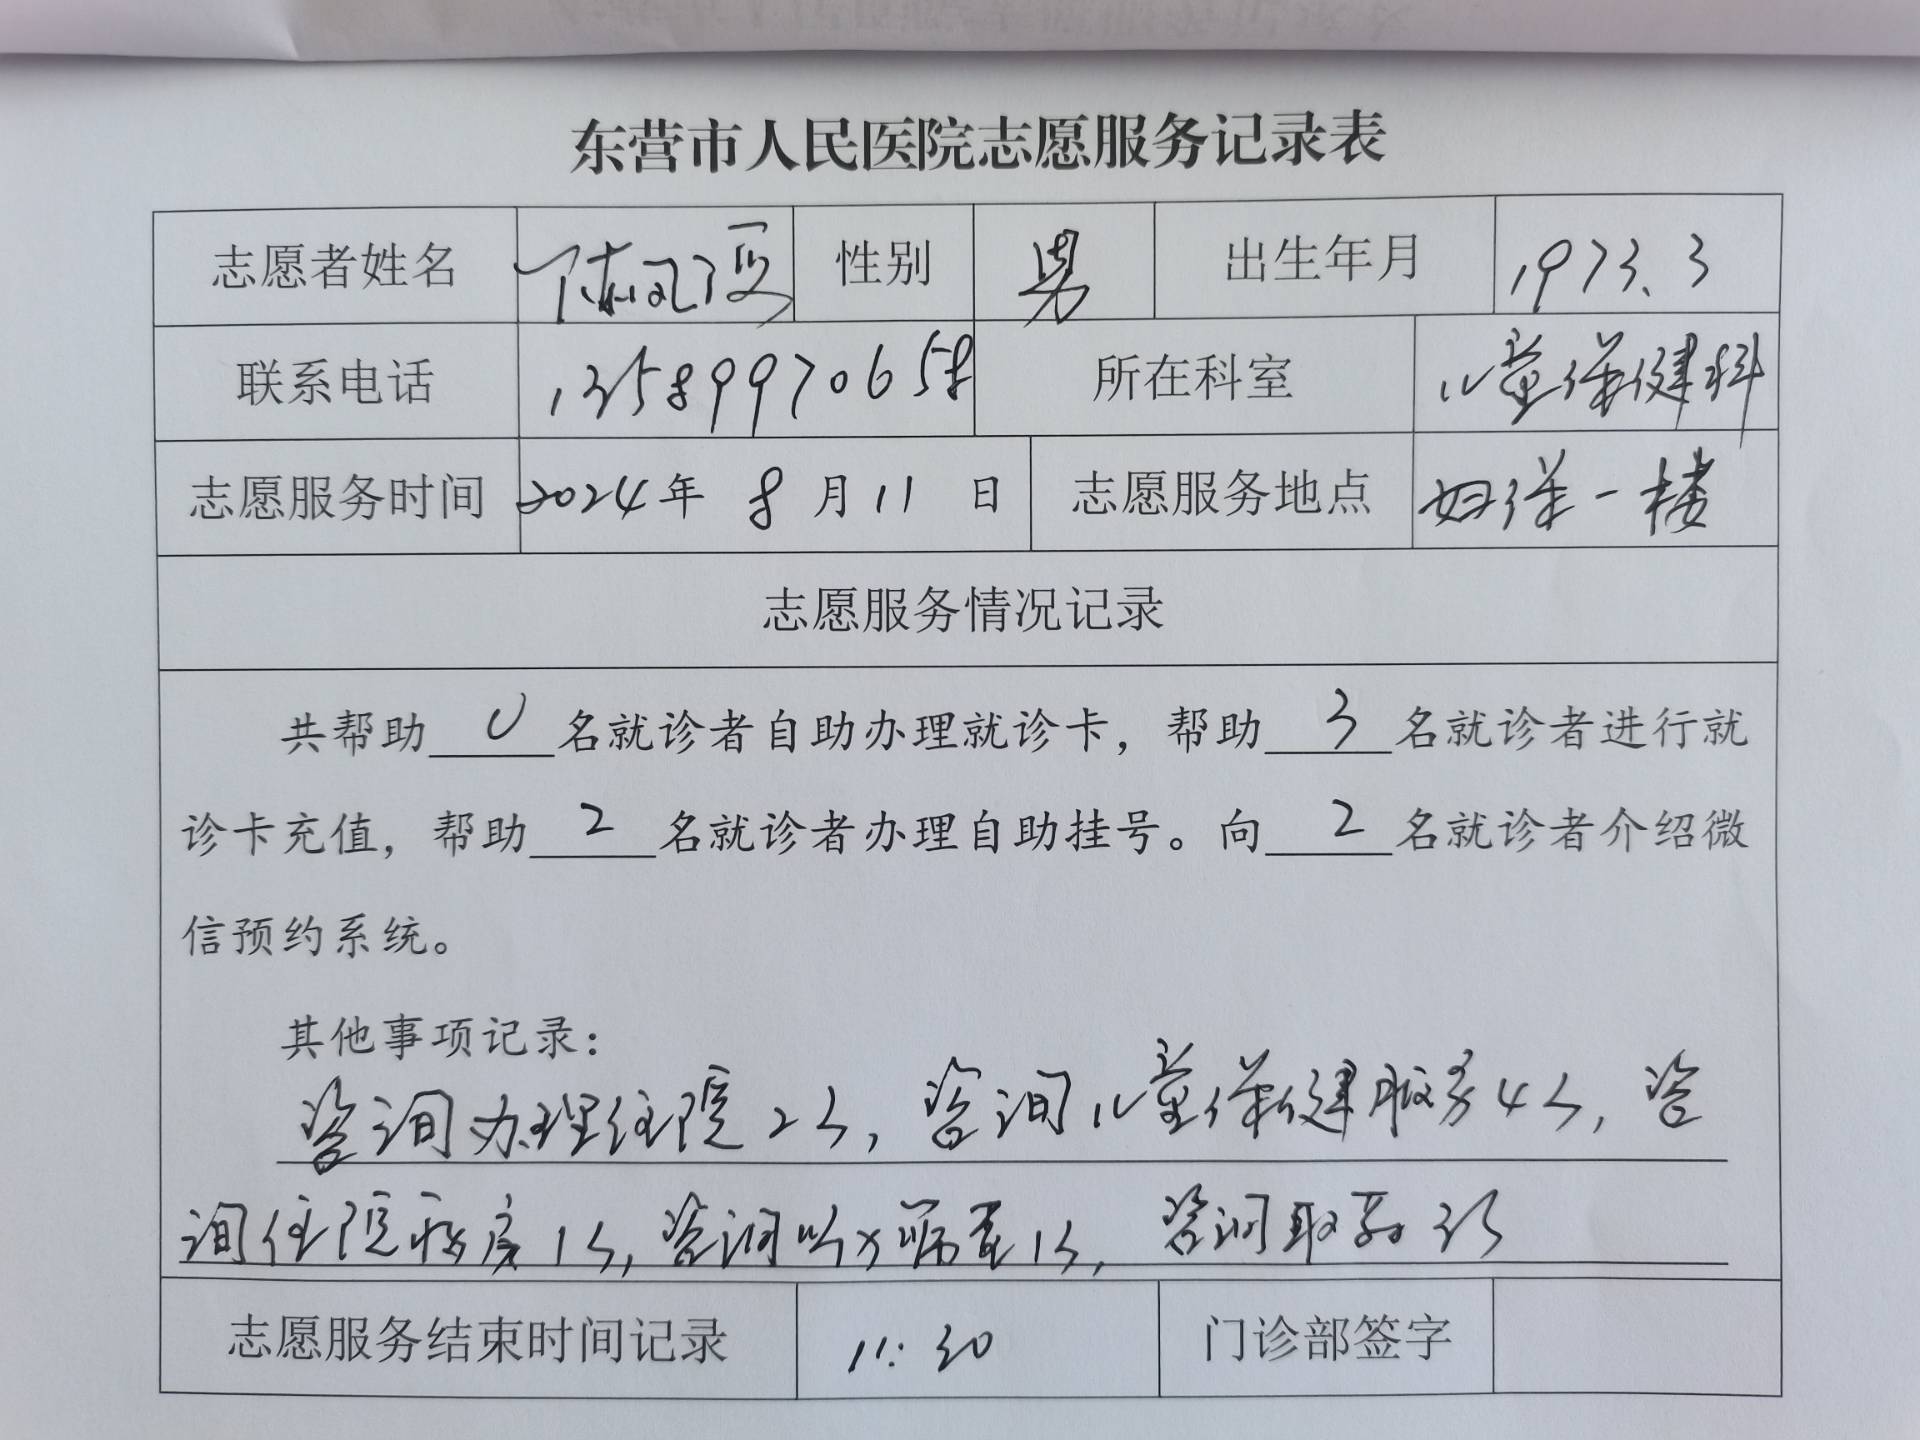 东营市人民医院志愿服务记录表
志愿者姓名 性别 男 出生年月 1973.3
联系电话 13589970658 所在科室 儿童保健科
志愿服务时间 2024年 8 月 11 日 志愿服务地点 妇保一楼
志愿服务情况记录
共帮助 0 名就诊者自助办理就诊卡，帮助 3 名就诊者进行就
诊卡充值，帮助 2 名就诊者办理自助挂号。向 2 名就诊者介绍微
信预约系统。
其他事项记录：
咨询办理住院2人，咨询儿童保健服务4人，咨
询住院病房1人，咨询 1人，咨询取药2人
志愿服务结束时间记录 11:30 门诊部签字